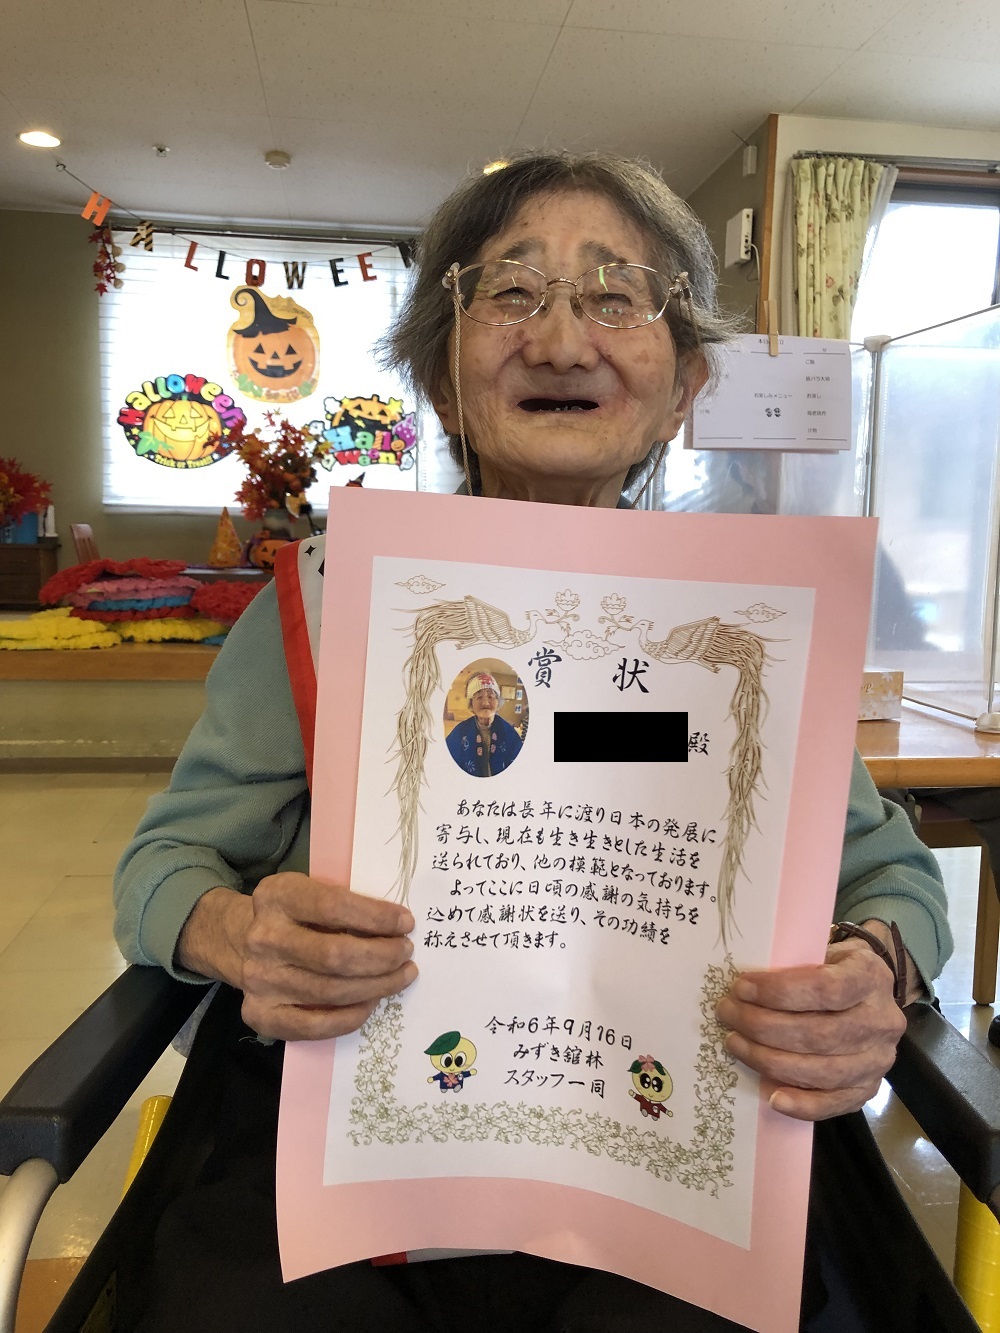 HALLOWEEN
Halloween
Trick or Treat!
Hallo
ween!
ご飯
豚バラ大根
お楽しみメニュー
お浸し
汁物
賞 状
殿
あなたは長年に渡り日本の発展に
寄与し、現在も生き生きとした生活を
送られており、他の模範となっております。
よってここに日頃の感謝の気持ちを
込めて感謝状を送り、その功績を
称えさせて頂きます。
令和6年9月16日
みずき舘林
スタッフ一同